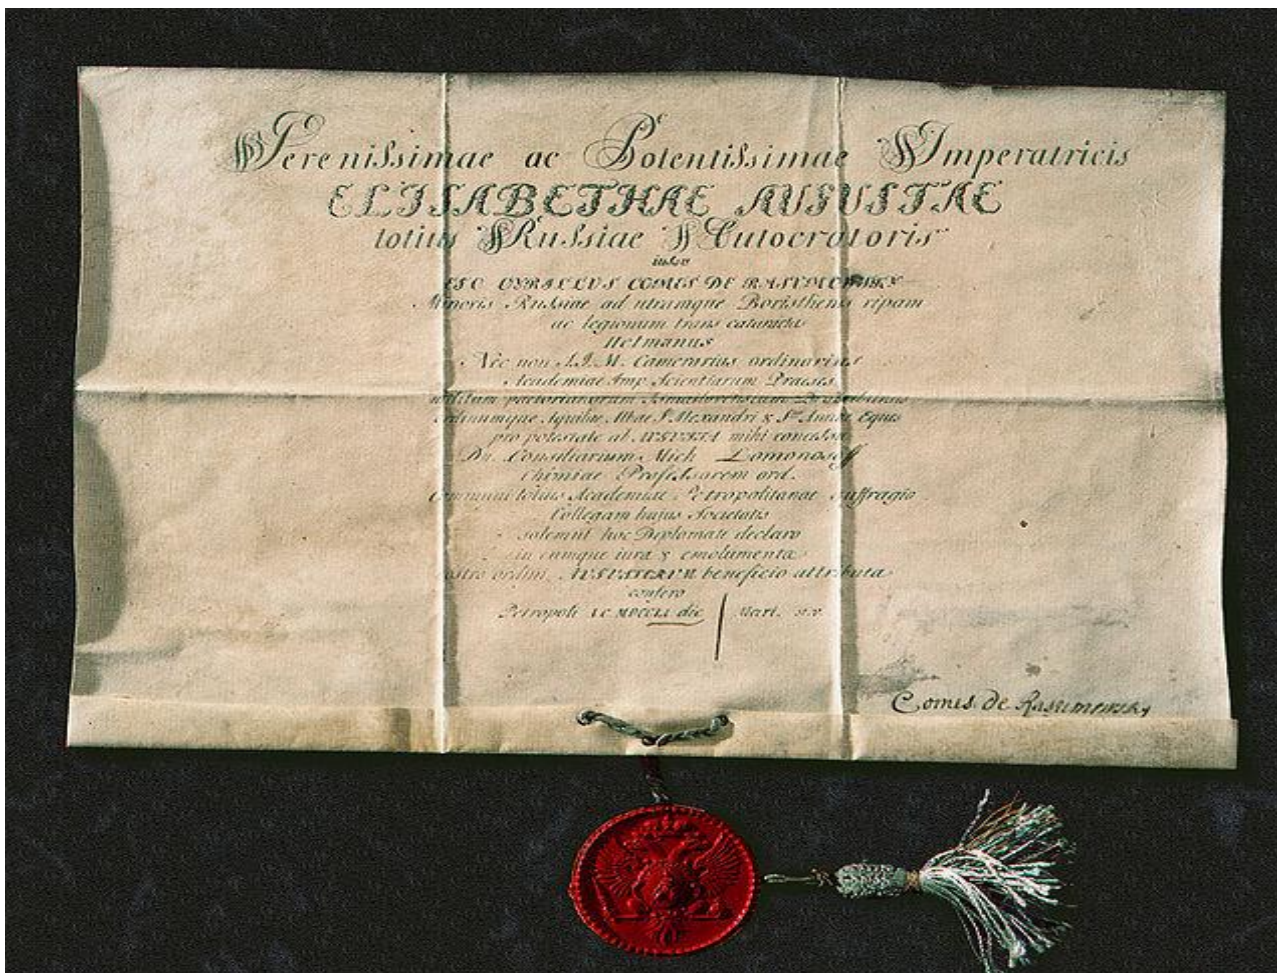 Serenissimae ac Potentissimae Imperatricis
ELISABETHAE AUGUSTAE
totius Russiae Autocratoris
iussu
EGO CYRILLUS COMES DE RASUMOWSKY
Minoris Russiae ad utramque Boristhenis ripam
ac legionum trans cataracta
Hetmanus
Nec non S.I.M. Camerarius ordinarius
Academiae Imp. Scientiarum Praeses
ordinumque Aquilae Albae S. Alexandri & Stae Annae Eques
pro potestate ab AUGUSTA mihi concessa
Dn. Consiliarium Mich. Lomonosoff
Chimiae Professorem ord.
Communi totius Academiae Petropolitanae suffragio
Collegam hujus Societatis
solemni hoc Diplomate declaro
in eumque iura & emolumenta
nostro ordini AUGUSTORUM beneficio attributa
confero
Petropoli MDCCLI die 1 Mart.
Comes de Rasumowsky